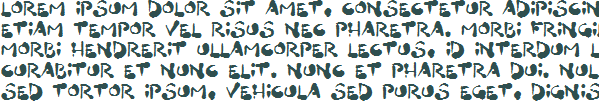 LOREM IPSUM DOLOR SIT AMET, CONSECTETUR ADIPISCIN
ETIAM TEMPOR VEL RISUS NEC PHARETRA. MORBI FRINGI
MORBI HENDRERIT ULLAMCORPER LECTUS, ID INTERDUM L
CURABITUR ET NUNC ELIT. NUNC ET PHARETRA DUI. NUL
SED TORTOR IPSUM, VEHICULA SED PURUS EGET, DIGNIS